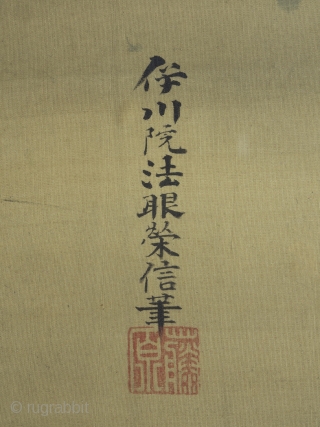 伊川院法眼榮信筆
藤原
© rugrabbit